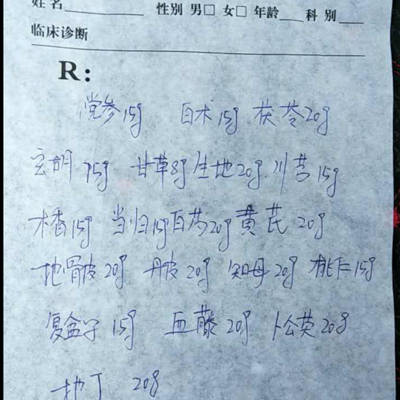 姓名 性别 男□ 女□ 年龄 科别
临床诊断
R:
党参15g 白术15g 茯苓20g
玄明 15g 甘草8g 生地20g 川芎15g
木香15g 当归15g 白芍20g 黄芪 20g
地骨皮 20g 丹皮 20g 知母 20g 桃仁15g
复盆子 15g 血藤 20g 卜公英 20g
地丁 20g